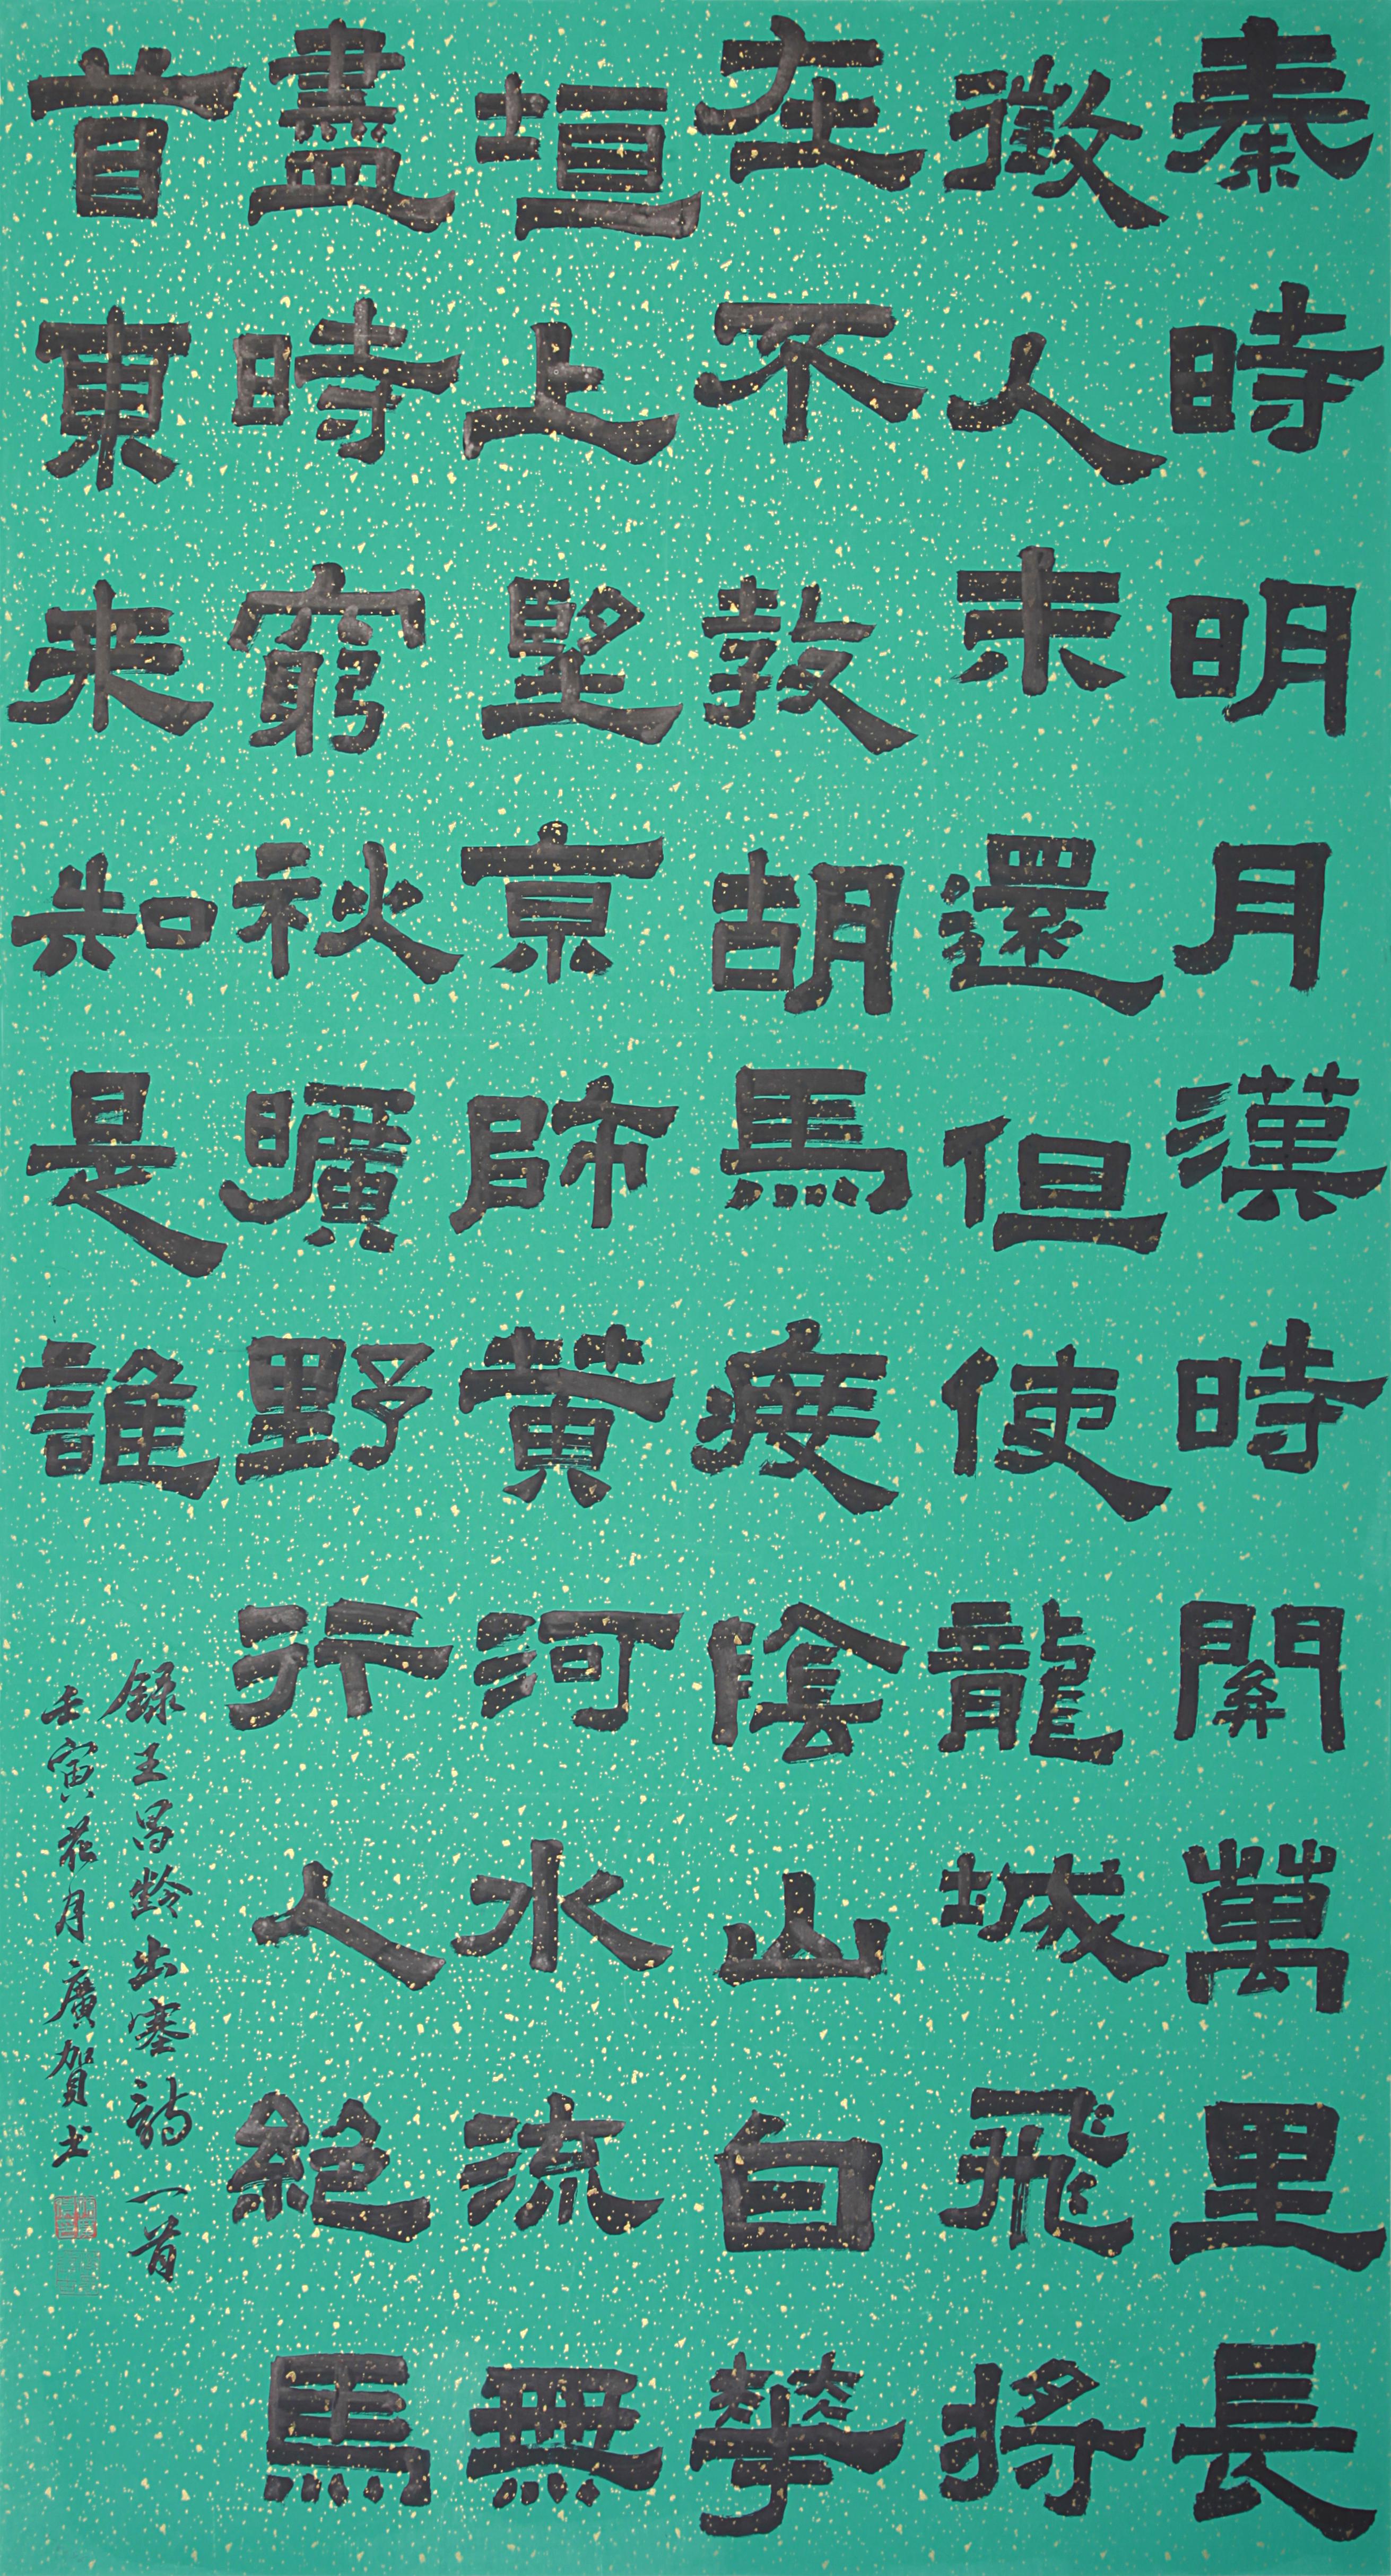 秦時明月漢時關萬里長
徵人未還但使龍城飛將
在不敦胡馬度陰山白華
垣上望京師黄河水流無
盡時窮秋曠野行人絕馬
首東来知是誰
錄王昌齡出塞詩一首
壬寅花月廣賀书